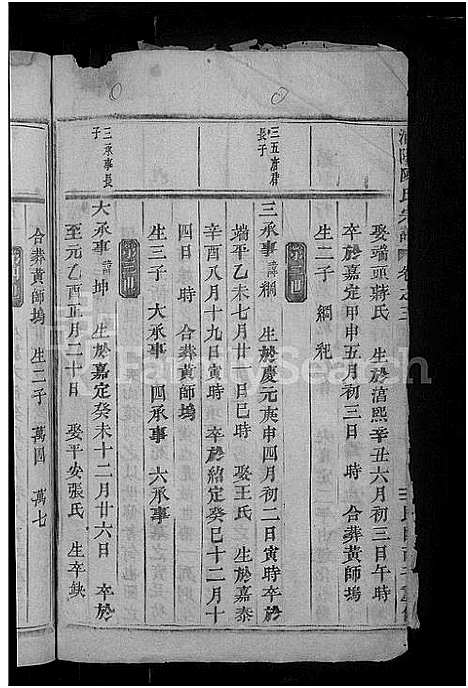 陽陳氏宗譜 卷之三
娶端頭蔣氏 生於淳熙辛丑六月初三日午時
卒於嘉定甲申五月初三日 時 合葬黃師塢
生二子 綱 紀
三五唐君長子
三承事 諱綱 生於慶元庚申四月初二日寅時卒於
端平乙未七月廿一日巳時 娶王氏 生於嘉泰
辛酉八月十九日寅時 卒於紹定癸巳十二月十
四日 時 合葬黃師塢
生三子 大承事 四承事 六承事
三承事長子
大承事 諱坤 生於嘉定癸未十二月廿六日 卒於
至元乙酉正月二十日 娶平安張氏 生卒缺
合葬黃師塢 生二子 萬四 萬七
FamilySearch